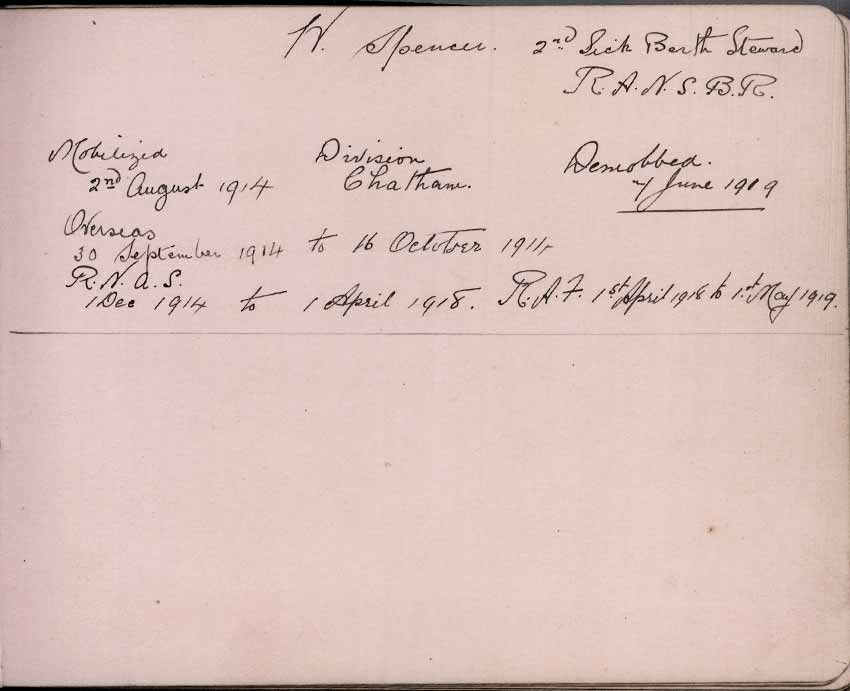 W. Spencer. 2nd Sick Berth Steward
R.A.N.S.B.R.
Mobilized Division Demobbed.
2nd August 1914 Chatham. 7 June 1919
Overseas
30 September 1914 to 16 October 1914
R.N.A.S.
1 Dec 1914 to 1 April 1918. R.A.F. 1st April 1918 to 1st May 1919.